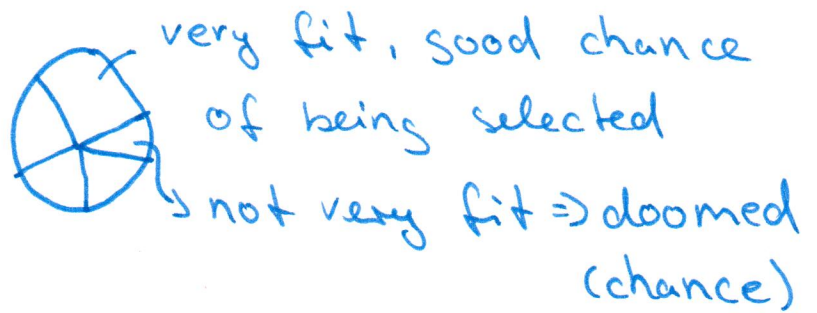 very fit, good chance
of being selected
not very fit => doomed
(chance)